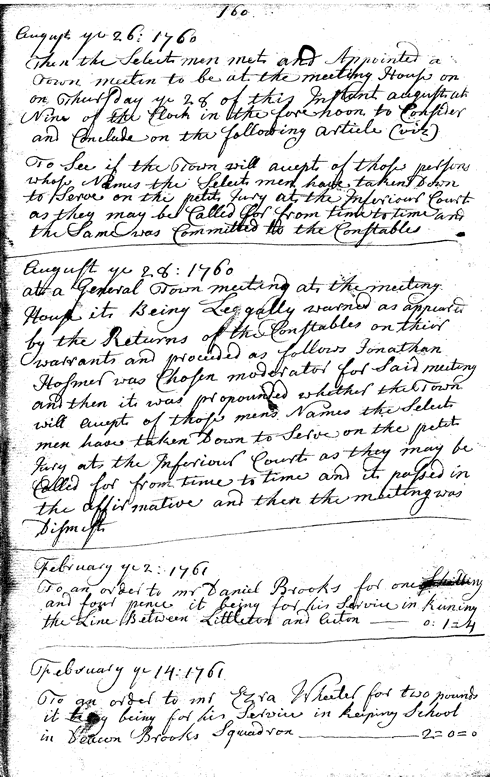 160
August ye 26: 1760
Then the Select men met and Appointed a
Town meeten to be at the meeting House on
on Thursday ye 28 of this Instant august at
Nine of the Clock in the fore noon to Consider
and Conclude on the following article (viz)
To See if the Town will accept of those persons
whose Names the Select men have taken Down
to Serve on the petit Jury at the Inferiour Court
as they may be Called for from time to time and
the Same was Committed to the Constables
August ye 28: 1760
at a General Town meeting at the meeting
House it Being Leggally warned as appeared
by the Returns of the Constables on thier
warrants and proceeded as follows Jonathan
Hosmer was Chosen moderator for Said meeting
and then it was propounded whether the Town
will accept of those mens Names the Select
men have taken Down to Serve on the petit
Jury at the Inferiour Court as they may be
Called for from time to time and it passed in
the affirmative and then the meeting was
Dismist
February ye 2: 1761
To an order to mr Daniel Brooks for one Shilling
and four pence it being for his Service in Runing
the Line Between Littleton and Acton — 0: 1=4
February ye 14: 1761
To an order to mr Ezra Wheeler for two pounds
it being for his Service in keeping School
in Deacon Brooks Squadron — 2=0=0